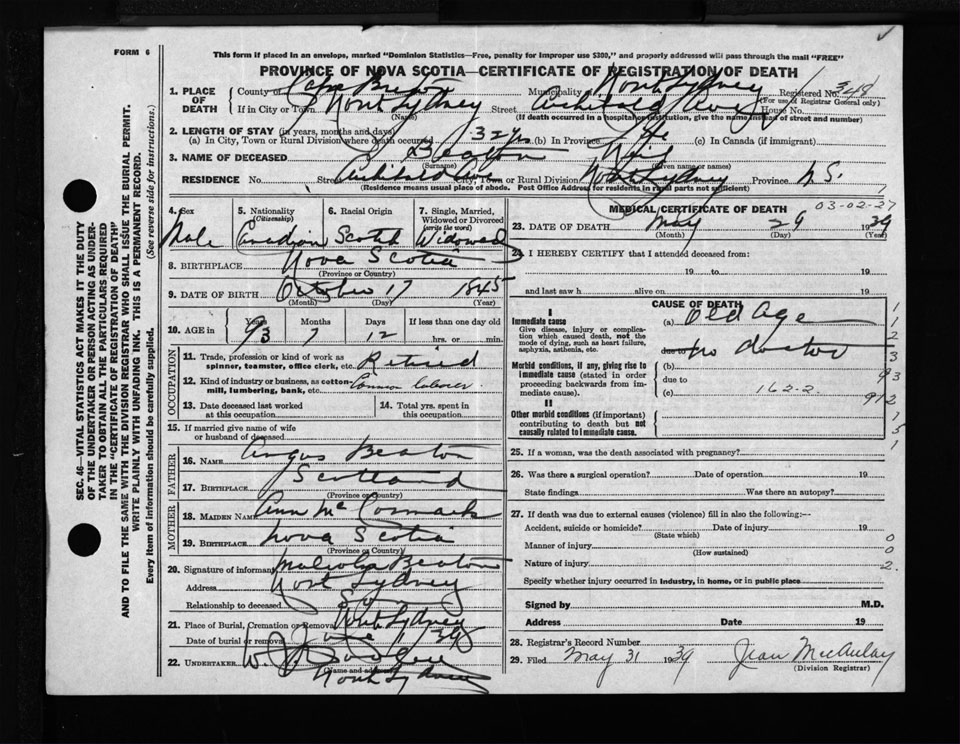 FORM 6
This form if placed in an envelope, marked "Dominion Statistics—Free, penalty for improper use $300," and properly addressed will pass through the mail "FREE"
PROVINCE OF NOVA SCOTIA—CERTIFICATE OF REGISTRATION OF DEATH
1. PLACE OF DEATH
County of Cape Breton Municipality North Sydney Registered No. 348
(For use of Registrar General only)
If in City or Town North Sydney Street Archibald Ave House No.
(Name) (If death occurred in a hospital or institution, give the name instead of street and number)
2. LENGTH OF STAY (in years, months and days)
(a) In City, Town or Rural Division where death occurred 32 yrs (b) In Province Life (c) In Canada (if immigrant)
3. NAME OF DECEASED Beaton Neil
(Surname) (Given name or names)
RESIDENCE No. Street Archibald Ave City, Town or Rural Division North Sydney Province N.S.
(Residence means usual place of abode. Post Office Address for residents in rural parts not sufficient)
4. Sex
Male
5. Nationality
(Citizenship)
Canadian
6. Racial Origin
Scotch
7. Single, Married, Widowed or Divorced
(write the word)
Widowed
8. BIRTHPLACE Nova Scotia
(Province or Country)
9. DATE OF BIRTH October 17 1845
(Month) (Day) (Year)
10. AGE in Years Months Days If less than one day old
93 7 12 hrs. or min.
OCCUPATION
11. Trade, profession or kind of work as spinner, teamster, office clerk, etc. Retired
12. Kind of industry or business, as cotton-mill, lumbering, bank, etc. Common laborer
13. Date deceased last worked at this occupation
14. Total yrs. spent in this occupation
15. If married give name of wife or husband of deceased
FATHER
16. NAME Angus Beaton
17. BIRTHPLACE Scotland
(Province or Country)
MOTHER
18. MAIDEN NAME Ann McCormack
19. BIRTHPLACE Nova Scotia
(Province or Country)
20. Signature of informant Malcolm Beaton
Address North Sydney
Relationship to deceased Son
21. Place of Burial, Cremation or Removal North Sydney
Date of burial or removal June 1
22. UNDERTAKER W.
(Name and address)
North Sydney
MEDICAL CERTIFICATE OF DEATH
03-02-27
23. DATE OF DEATH May 29 1939
(Month) (Day) (Year)
24. I HEREBY CERTIFY that I attended deceased from:
19 to 19
and last saw h alive on 19
CAUSE OF DEATH
I
Immediate cause
Give disease, injury or complication which caused death, not the mode of dying, such as heart failure, asphyxia, asthenia, etc.
(a) Old Age
due to no doctor
Morbid conditions, if any, giving rise to immediate cause (stated in order proceeding backwards from immediate cause).
(b)
due to
(c) 162-2
II
Other morbid conditions (if important) contributing to death but not causally related to immediate cause.
25. If a woman, was the death associated with pregnancy?
26. Was there a surgical operation? Date of operation 19
State findings Was there an autopsy?
27. If death was due to external causes (violence) fill in also the following:—
Accident, suicide or homicide? Date of injury 19
(State which)
Manner of injury
(How sustained)
Nature of injury
Specify whether injury occurred in Industry, in home, or in public place
Signed by M.D.
Address Date 19
28. Registrar's Record Number
29. Filed May 31 1939 Jean McAulay
(Division Registrar)
SEC. 46—VITAL STATISTICS ACT MAKES IT THE DUTY
OF THE UNDERTAKER OR PERSON ACTING AS UNDER-
TAKER TO OBTAIN ALL THE PARTICULARS REQUIRED
IN THE "CERTIFICATE OF REGISTRATION OF DEATH"
AND TO FILE THE SAME WITH THE DIVISION REGISTRAR WHO SHALL ISSUE THE BURIAL PERMIT.
WRITE PLAINLY WITH UNFADING INK. THIS IS A PERMANENT RECORD.
Every item of information should be carefully supplied. (See reverse side for instructions.)